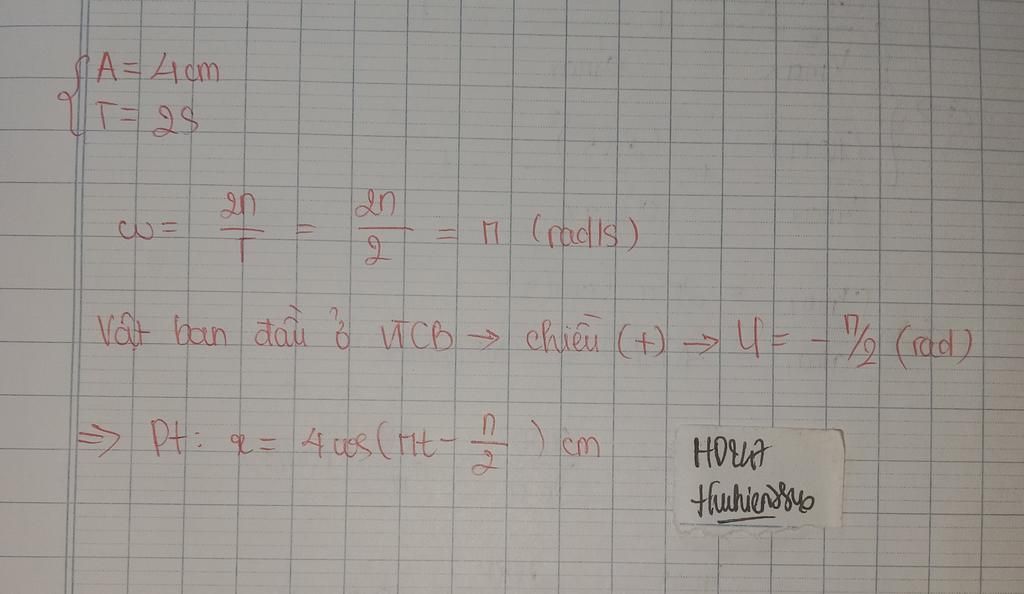 A = 4cm
T = 2s
ω = 2π/T = 2π/2 = π (rad/s)
Vật ban đầu ở VTCB → chiều (+) → φ = - π/2 (rad)
⇒ Pt: x = 4cos(πt - π/2) cm
HOC247